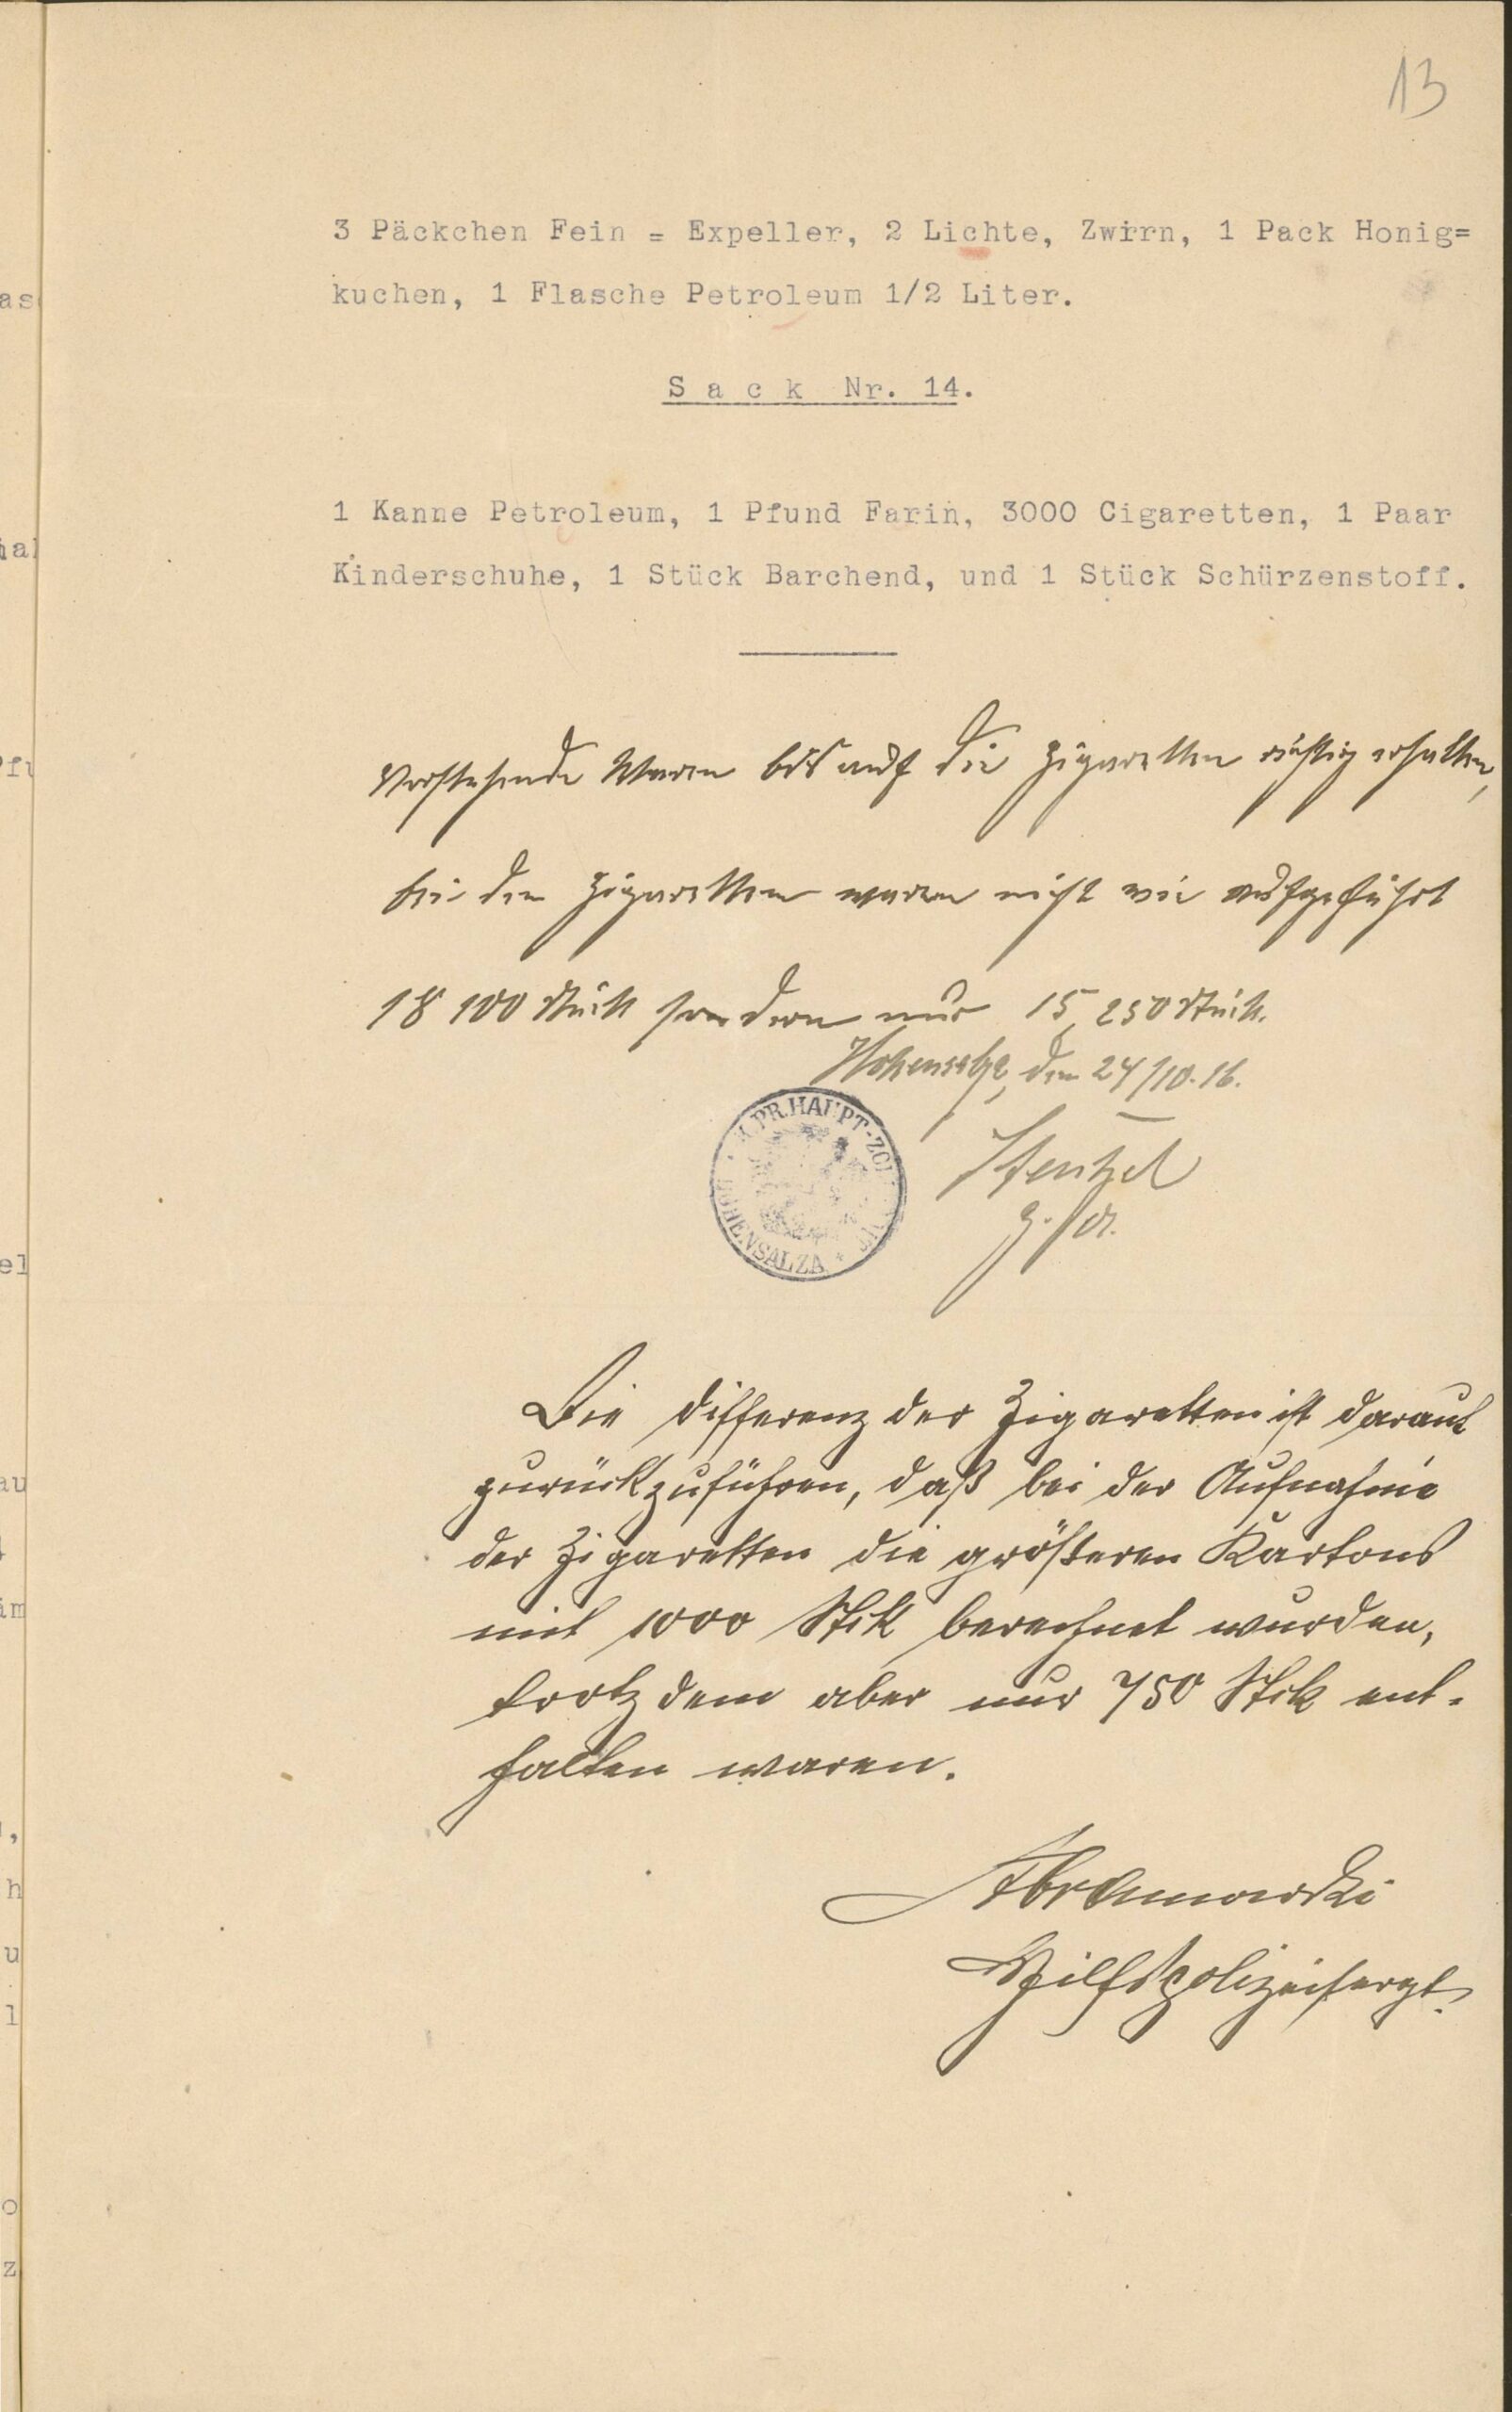 13
3 Päckchen Fein = Expeller, 2 Lichte, Zwirn, 1 Pack Honig=
kuchen, 1 Flasche Petroleum 1/2 Liter.
Sack Nr. 14.
1 Kanne Petroleum, 1 Pfund Farin, 3000 Cigaretten, 1 Paar
Kinderschuhe, 1 Stück Barchend, und 1 Stück Schürzenstoff.
Vorstehende Waren bis auf die Zigaretten richtig erhalten,
bei den Zigaretten waren nicht wie aufgeführt
18 100 Stück sondern nur 15 250 Stück.
Hohensalza, den 24/10.16.
K.PR.HAUPT-ZOLL
HOHENSALZA
Stenzel
Die Differenz der Zigaretten ist darauf
zurückzuführen, daß bei der Aufnahme
der Zigaretten die größeren Kartons
mit 1000 Stck berechnet wurden,
trotzdem aber nur 750 Stck ent-
halten waren.
Abramowski
Hilfspolizeisergt.